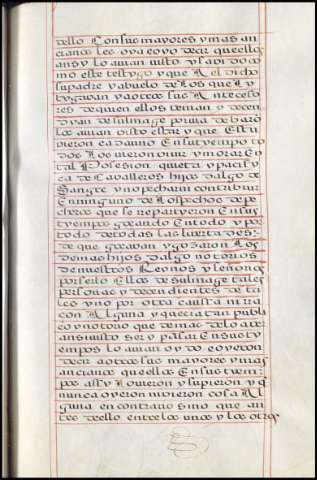 dello Con sus mayores y mas an
cianos les oya e oyo decir que ellos
ansy lo auian uisto y sauido co
mo este testygo y que A el dicho
su padre y abuelo de los que Ly
tygauan y a otros sus Antecesso
res de quien ellos uenian y decen
dyan de su linage por uia de baro
los auian uisto estar y que Estu
uieron cada uno En su tyempo to
dos Los uieron uiuir y morar En
tal Posesion quieta y pacifyca
ca de Caualleros hijos dalgo de
Sangre y no pechar ni contribuir
En ninguno de Los pechos de pe
cheros que se repartyeron En sus
tyempos goçando En todo y por
todo de todas las liuertades
de que goçauan y goçaron Los
demas hijos dalgo notorios
de nuestros Reynos y señorios
por ser lo Ellos de su linage tales
personas y decendientes de ta
les y no por otra caussa ni ra
con Alguna y que era tan publi
co y notorio que demas de lo auer
ansi uisto ser y pasar En sus ty
empos lo auian oydo e oyeron
decir a otros sus mayores y mas
ancianos que ellos En sus tiem
pos assy Louieron y supieron y q
nunca oyeron ni uieron cosa Al
guna en contrario sino que an
tes de ello entre los unos y los otros